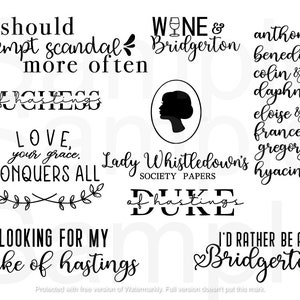 should
tempt scandal
more often
WINE &
Bridgerton
anthony
benedict
colin &
daphne
eloise &
francesca
gregory
hyacinth
DUCHESS
of hastings
LOVE,
your grace,
CONQUERS ALL
Lady Whistledown's
SOCIETY PAPERS
DUKE
of hastings
LOOKING FOR MY
duke of hastings
I'D RATHER BE
Bridgerton
Protected with free version of Watermarkly. Full version doesn't put this mark.